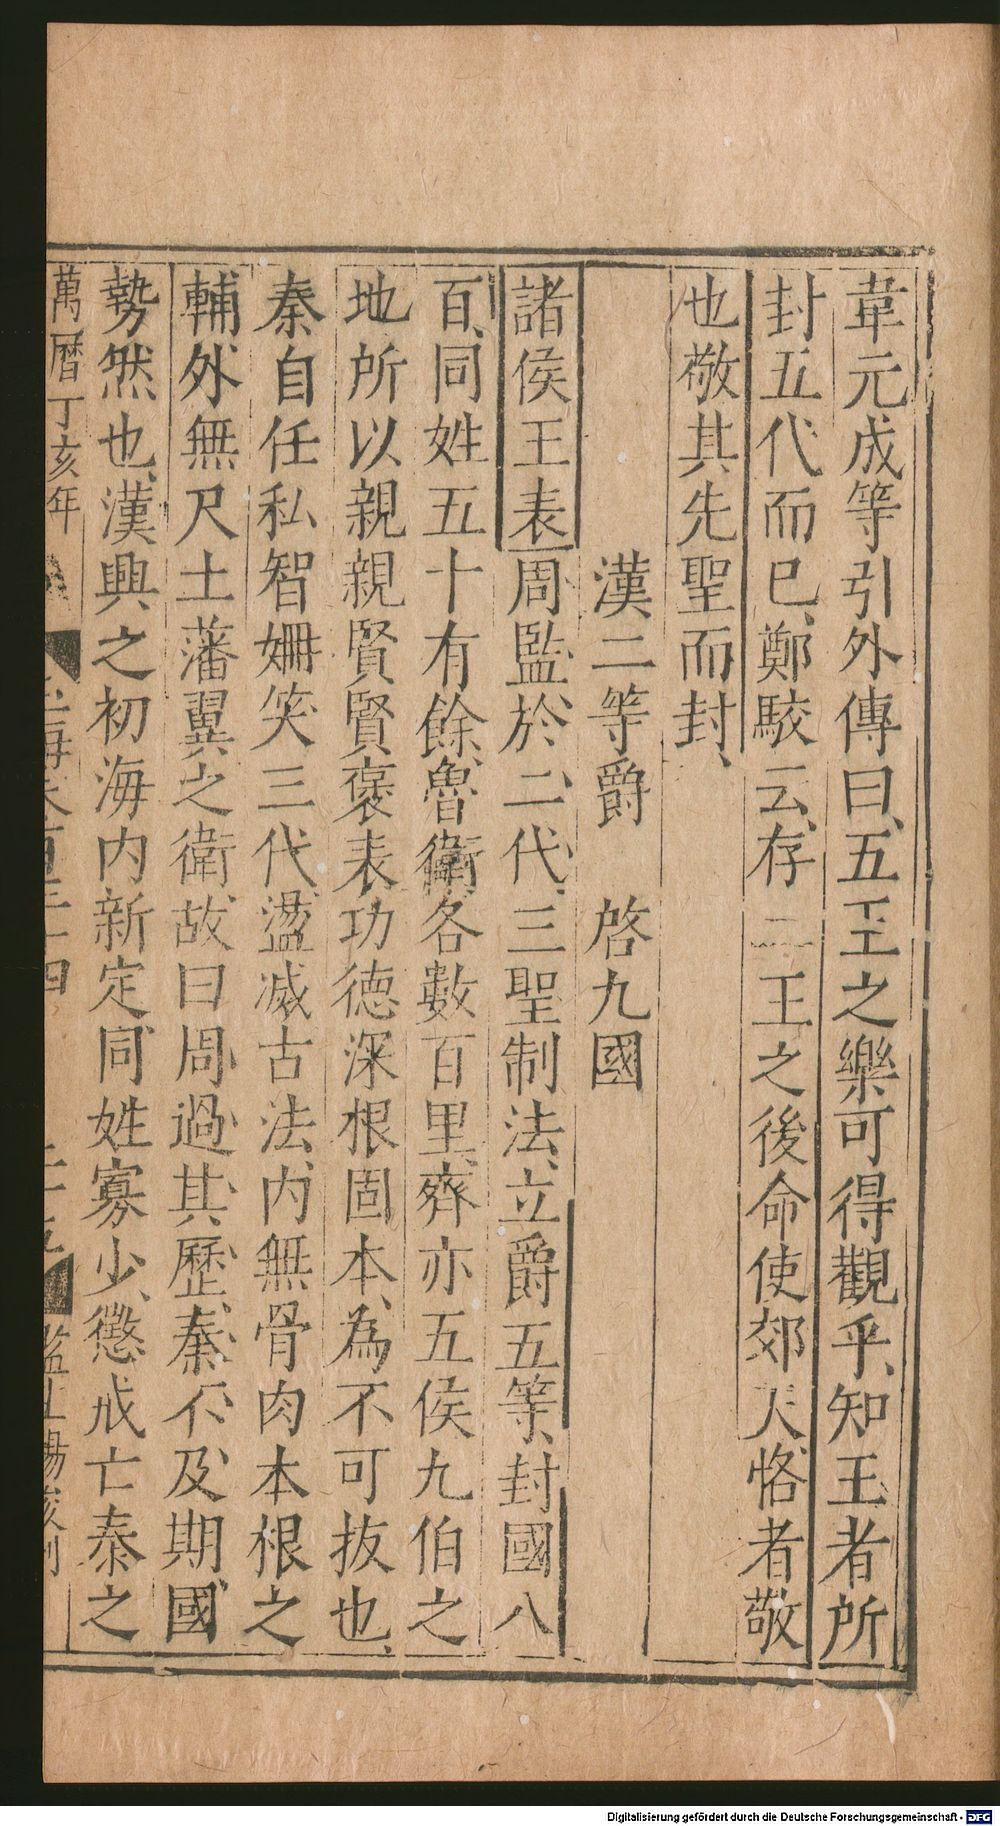 韋元成等引外傳曰五王之樂可得觀乎知王者所
封五代而已鄭駮云存二王之後命使郊天恪者敬
也敬其先聖而封
漢二等爵 啓九國
諸侯王表周監於二代三聖制法立爵五等封國八
百同姓五十有餘魯衛各數百里齊亦五侯九伯之
地所以親親賢賢褒表功德深根固本為不可抜也
秦自任私智姍笑三代盪滅古法内無骨肉本根之
輔外無尺土藩翼之衛故曰周過其歷秦不及期國
勢然也漢興之初海内新定同姓寡少懲戒亡秦之
萬曆丁亥年
Digitalisierung gefördert durch die Deutsche Forschungsgemeinschaft - DFG